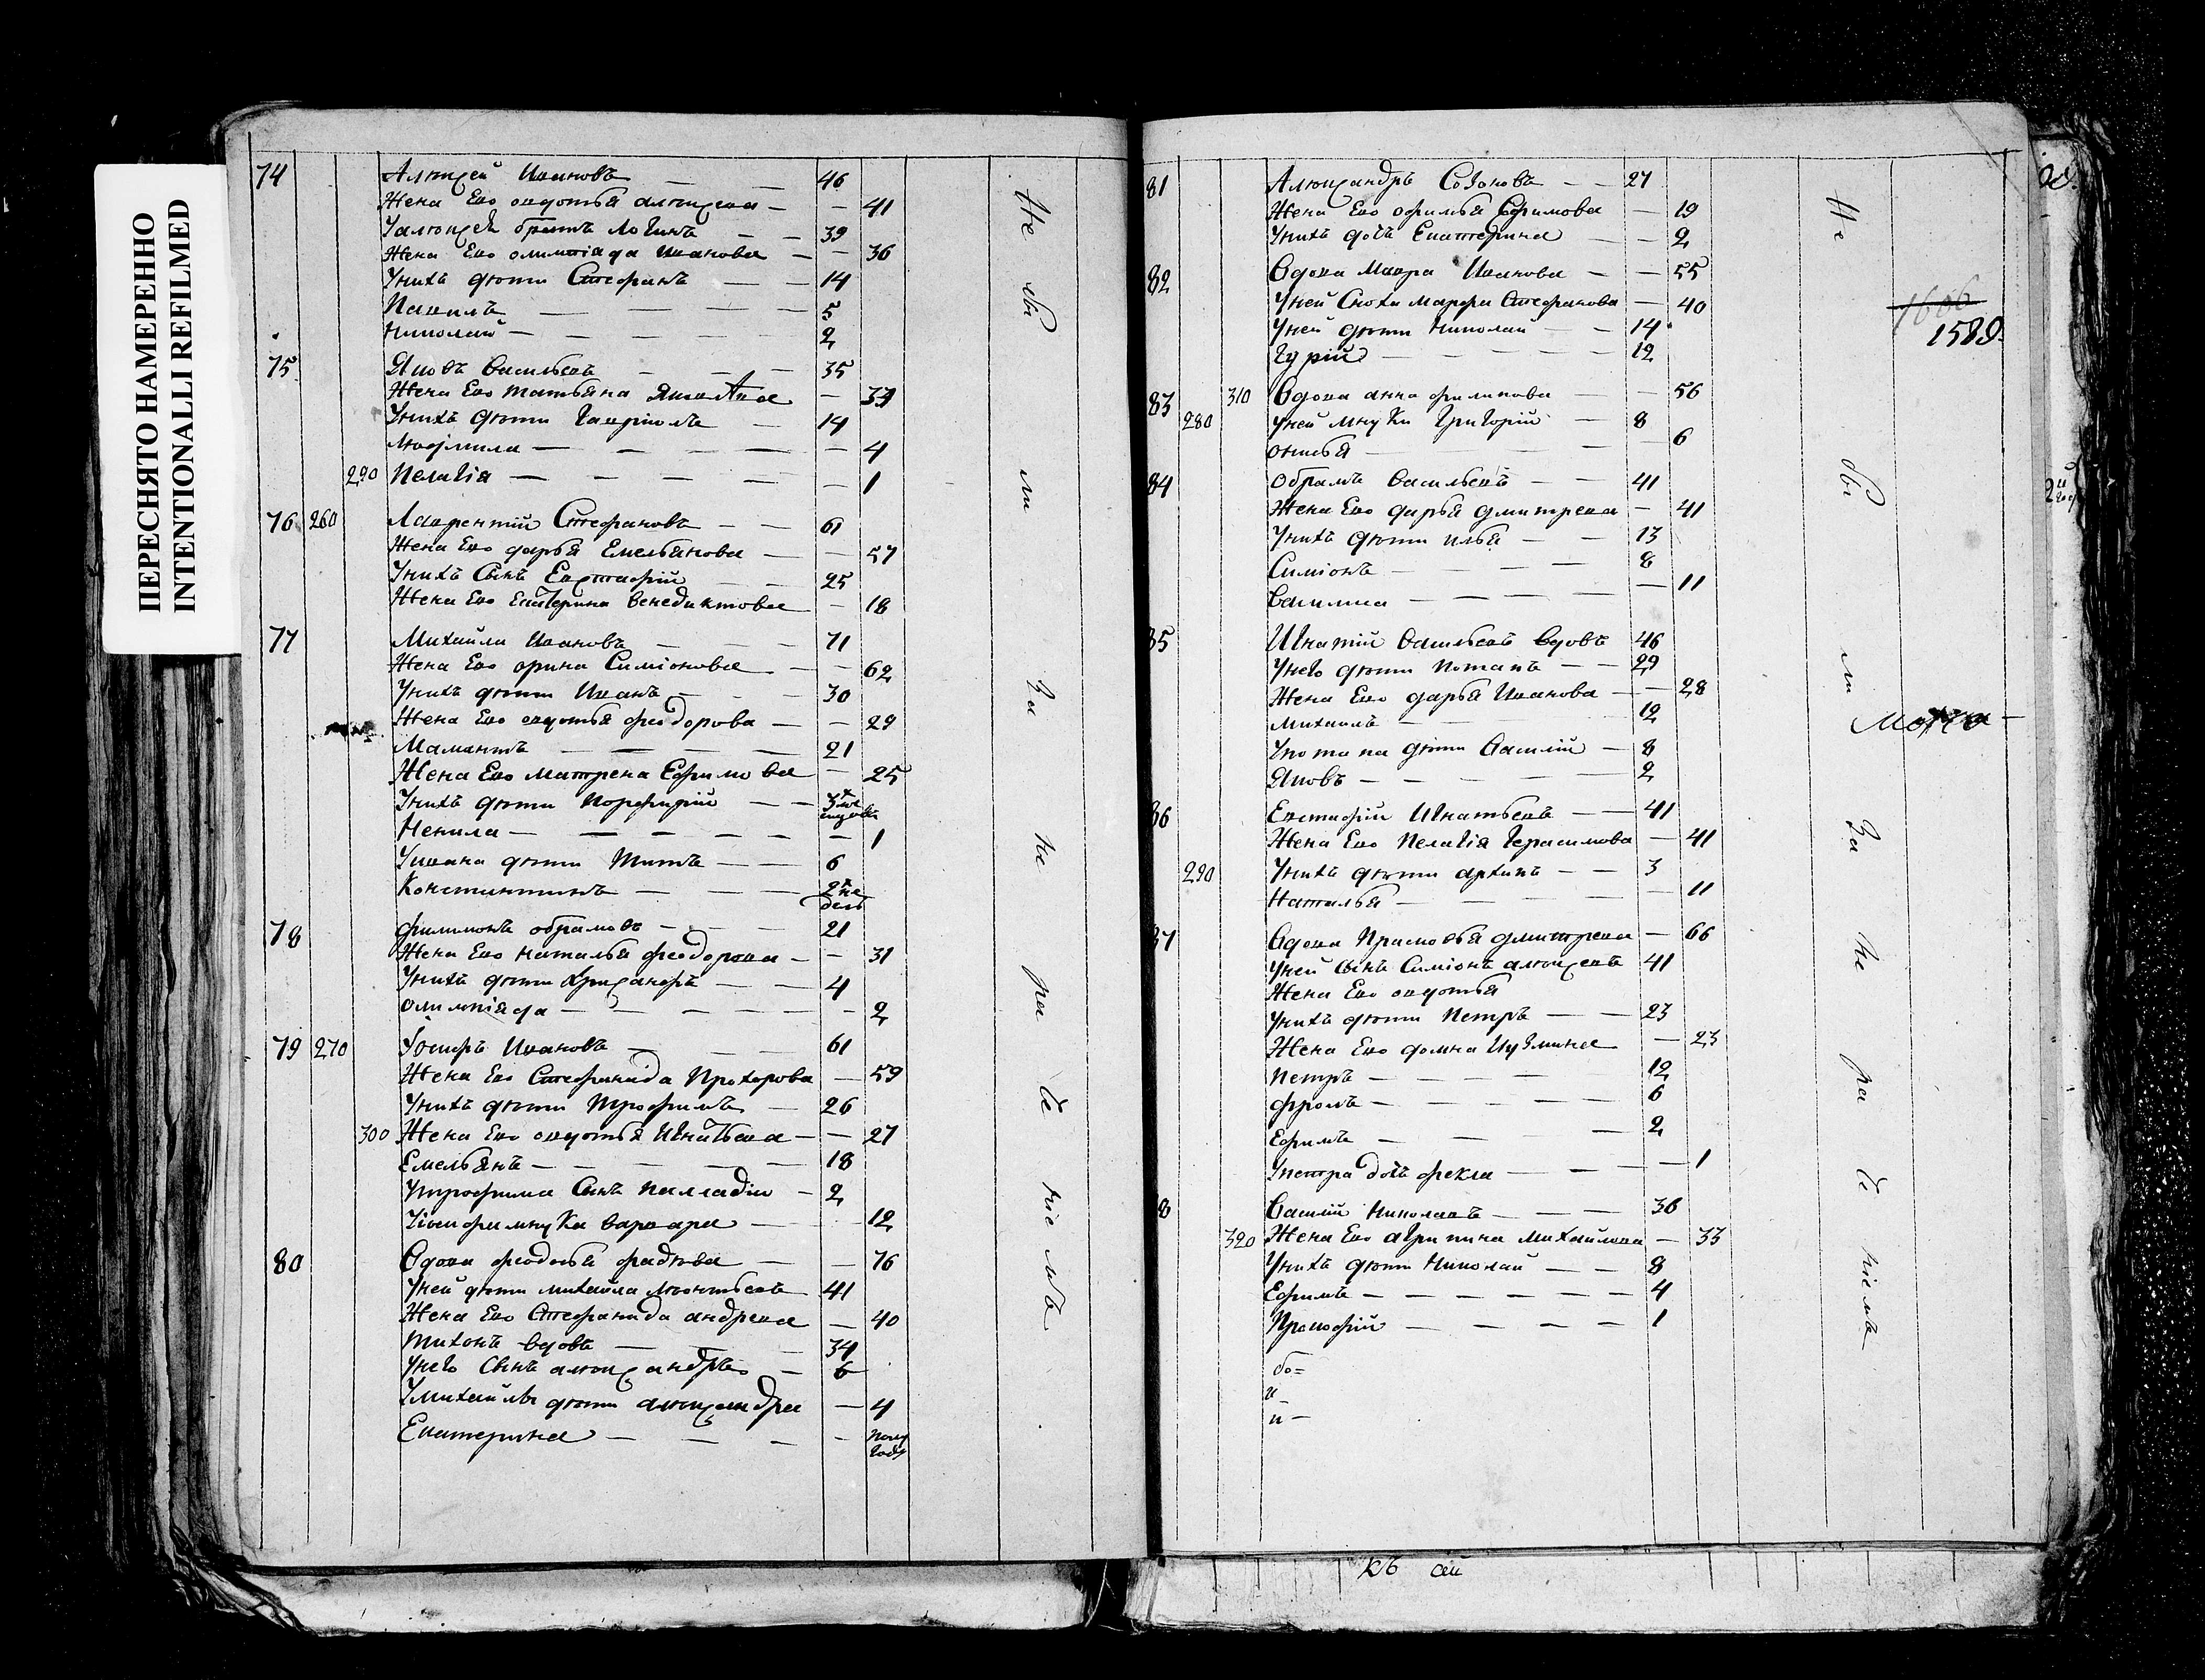 ПЕРЕСНЯТО НАМЕРЕННО
INTENTIONALLI REFILMED
74 Алѣксей Ивановъ 46
Жена Ево овдотья алѣксева 41
Уалѣксея братъ Логинъ 39
Жена Ево олимпіада Иванова 36
Унихъ дѣти Стефанъ 14
Павилъ 5
Николай 2
75 Яковъ Васильевъ 35
Жена Ево татьяна 33
Унихъ дѣти Гавріилъ 14
Людмила 4
290 Пелагія 1
76 260 Лаврентий Стефановъ 61
Жена Ево дарья Емельянова 57
Унихъ Сынъ Евстафій 25
Жена Ево Екатерина Венедиктова 18
77 Михайла Ивановъ 71
Жена Ево орина Симіонова 62
Унихъ дѣти Иванъ 30
Жена Ево овдотья феодорова 29
Мамантъ 21
Жена Ево матрена Ефимова 25
Унихъ дѣти Порфирій 3х
Ненила 1
Уивана дѣти Титъ 6
Констинтинъ 2х недель
78 филимонъ обрамовъ 21
Жена Ево наталья феодорова 31
Унихъ дѣти Хрисанфъ 4
олимпіада 2
79 270 Іосифъ Ивановъ 61
Жена Ево Стефанида Прохорова 59
Унихъ дѣти Трофимъ 26
300 Жена Ево овдотья Игнатьева 27
Емельянъ 18
Утрофима Сынъ Палладій 2
Уіосифа внука варвара 12
80 Вдова феодосья фадѣева 76
Уней дѣти михайла Лѣонтьевъ 41
Жена Ево Стефанида андрева 40
Тихонъ вдовъ 34
Унего Сынъ алѣксандръ 6
Умихайлы дѣти алѣксандра 4
Екатерина полу году
Не бы ли за не ра де ніемъ
81 Алѣксандръ Созоновъ 27
Жена Ево офимья Ефимова 19
Унихъ дочь Екатерина 2
82 Вдова Мавра Иванова 55
Уней Сноха марфа Стефанова 40
Уней дѣти Николай 14
Гурій 12
83 310 Вдова анна филипова 56
280 Уней внуки Григорій 8
6
84 обрамъ Васильевъ 41
Жена Ево дарья дмитрева 41
Унихъ дѣти илья 13
Симіонъ 8
Василиса 11
85 Игнатій Васильевъ вдовъ 46
Унего дѣти Потапъ 29
Жена Ево дарья Иванова 28
михаилъ 12
Употапа дѣти Василій 8
Яковъ 2
86 Евстафій Игнатьевъ 41
Жена Ево Пелагія Герасимова 41
290 Унихъ дѣти архипъ 3
Наталья 11
87 Вдова Прасковья дмитрева 66
Уней Сынъ Симіонъ алѣксевъ 41
Жена Ево овдотья
Унихъ дѣти Петръ 23
Жена Ево домна Кузмина 23
Петръ 12
фролъ 6
Ефимъ 2
Упетра дочь фекла 1
88 Василій Николаевъ 36
320 Жена Ево агрипина михайлова 33
Унихъ дѣти Николай 8
Ефимъ 4
Прокофій 1
Не бы ли за не ра де ніемъ
1606
1589